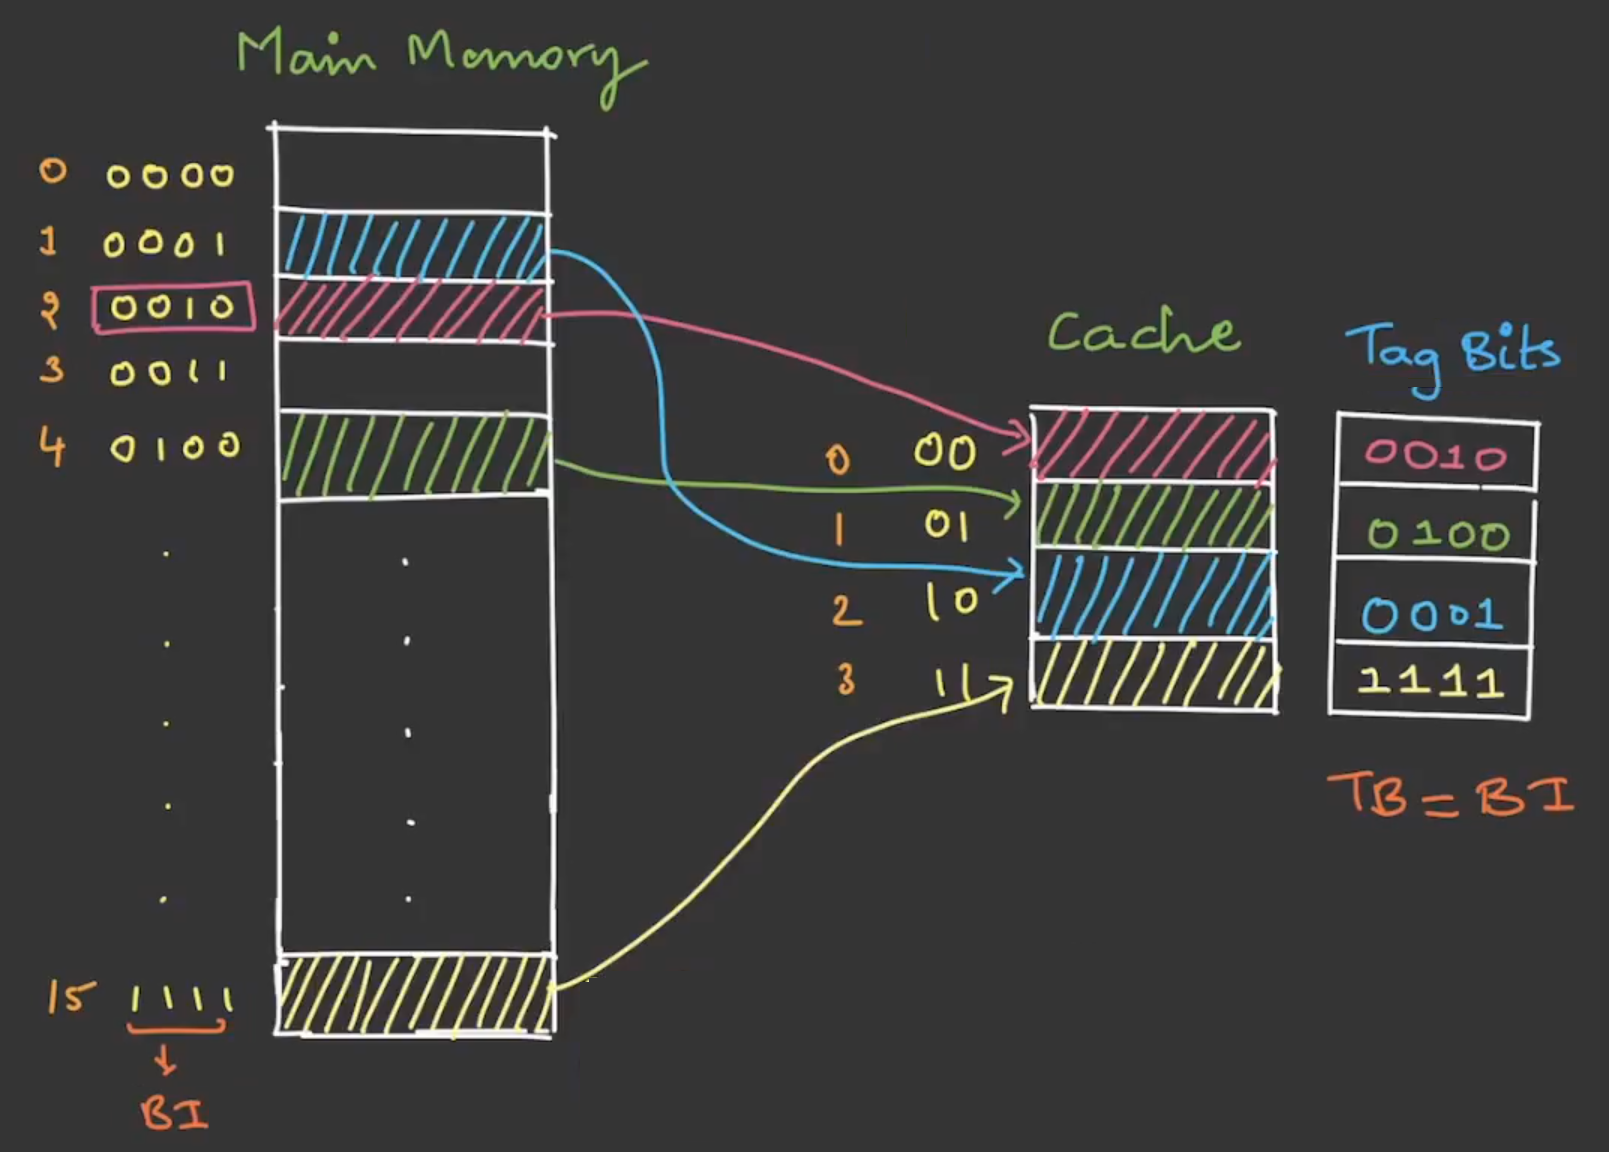 Main Memory
0 0000
1 0001
2 0010
3 0011
4 0100
15 1111
BI
Cache
0 00
1 01
2 10
3 11
Tag Bits
0010
0100
0001
1111
TB = BI